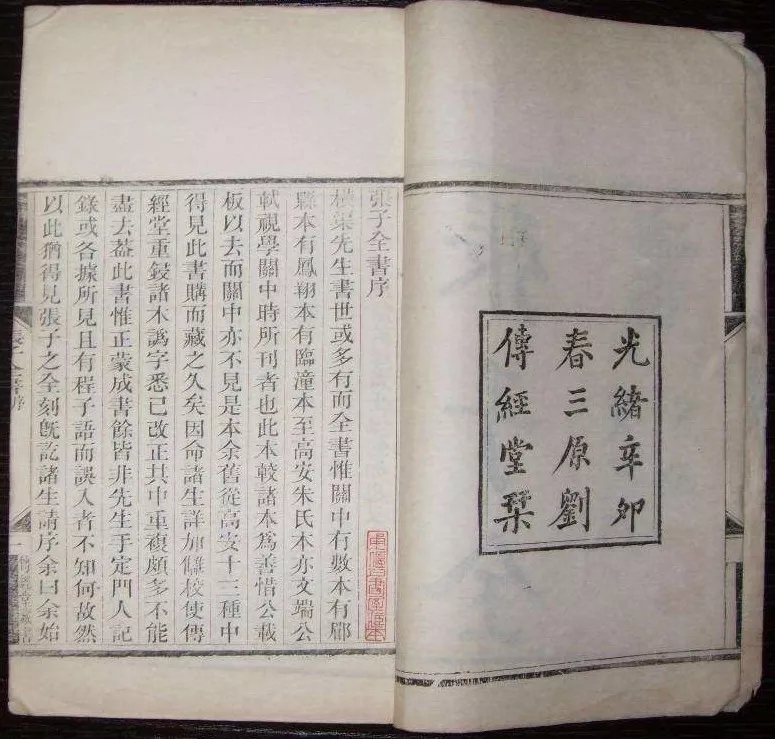 光緒辛卯
春三原劉
傳經堂槧
張子全書序
橫渠先生書世或多有而全書惟關中有數本有郿
縣本有鳳翔本有臨潼本至高安朱氏本亦文端公
軾視學關中時所刊者也此本較諸本為善惜公載
板以去而關中亦不見是本余舊從高安十三種中
得見此書購而藏之久矣因命諸生詳加讎校使傳
經堂重鋟諸木譌字悉已改正其中重複頗多不能
盡去葢此書惟正蒙成書餘皆非先生手定門人記
錄或各據所見且有程子語而誤入者不知何故然
以此猶得見張子之全刻旣訖諸生請序余曰余始
張子全書序
一